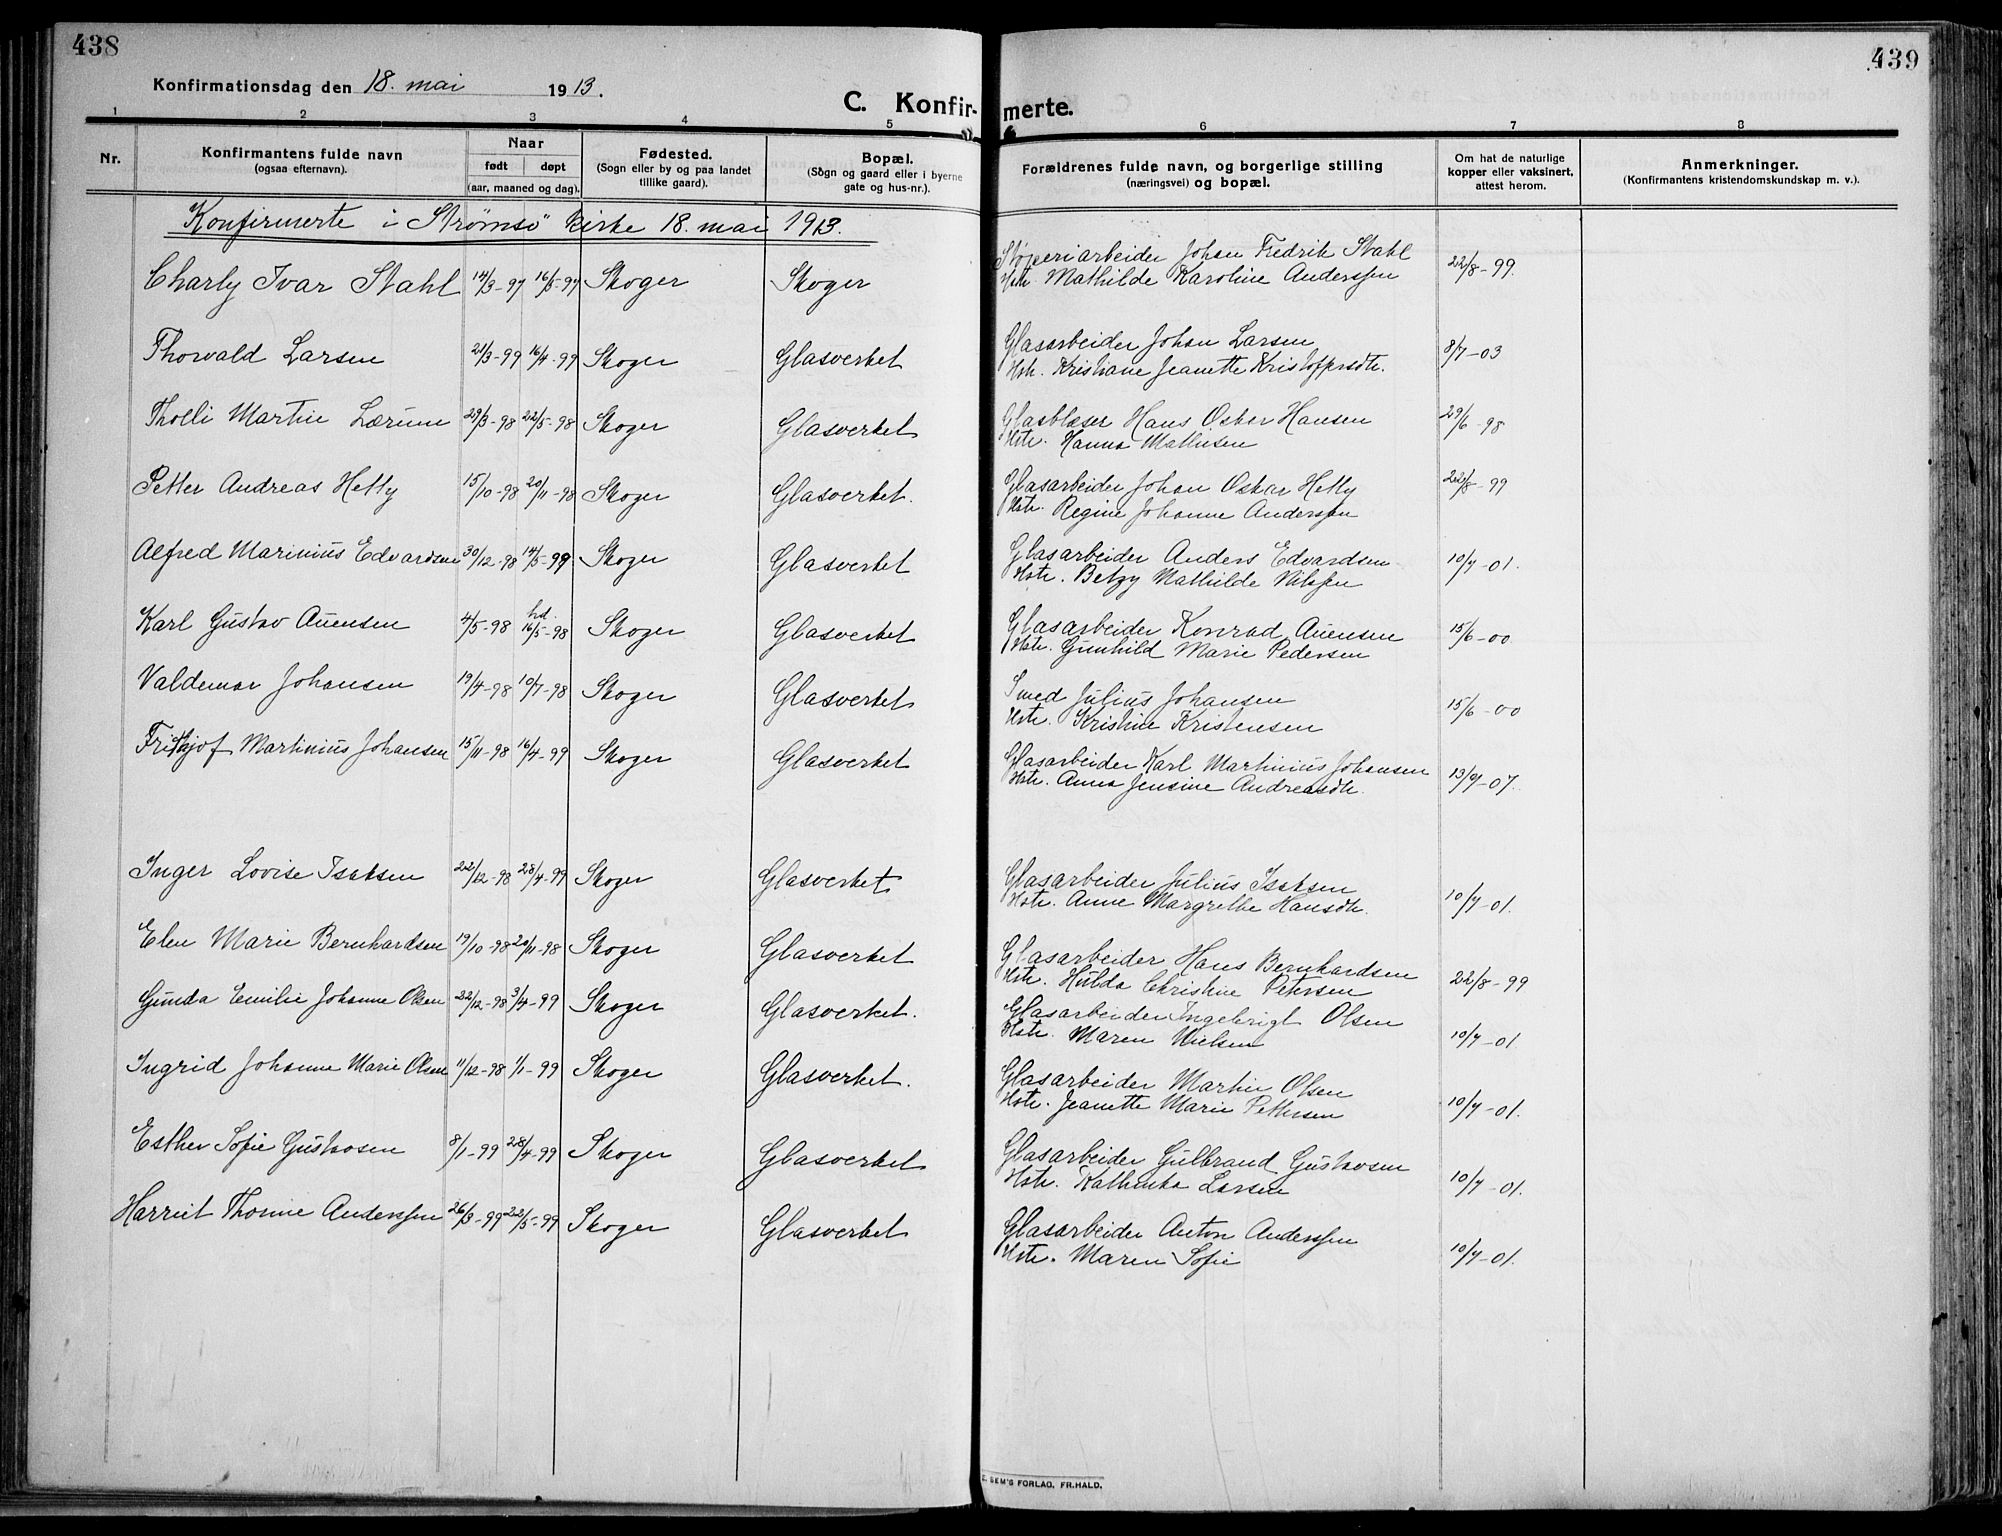 438
439
Konfirmationsdag den 18. mai 1913.
C. Konfirmerte.
1 2 3 4 5 6 7 8
Nr.
Konfirmantens fulde navn
(ogsaa efternavn).
Naar
født døpt
(aar, maaned og dag).
Fødested.
(Sogn eller by og paa landet
tillike gaard).
Bopæl.
(Sogn og gaard eller i byerne
gate og hus-nr.).
Forældrenes fulde navn, og borgerlige stilling
(næringsvei) og bopæl.
Om hat de naturlige
kopper eller vaksinert,
attest herom.
Anmerkninger.
(Konfirmantens kristendomskundskap m. v.).
Konfirmerte i Strømsø kirke 18. mai 1913.
Charly Ivar Stahl 14/3-97 16/5-97 Skoger Skoger Støperiarbeider Johan Fredrik Stahl 22/8-99.
Hstr. Mathilde Karoline Anderssen
Thorvald Larsen 21/3-99 16/4-99 Skoger Glasverket Glasarbeider Johan Larsen 8/7-03
Hstr. Kristiane Jeanette Kristoffersdtr.
Tholli Martin Lærum 29/3-98 22/5-98 Skoger Glasverket Glasblæser Hans Oskar Hansen 29/6-98
Hstr. Hanna Mathisen
Petter Andreas Hetty 15/10-98 20/11-98 Skoger Glasverket. Glasarbeider Johan Oskar Hetty 22/8-99
Hstr. Regine Johanne Anderssen
Alfred Marinius Edvardsen 30/12-98 14/5-99 Skoger Glasverket Glasarbeider Anders Edvardsen 10/7-01.
Hstr. Betzy Mathilde Nilssen
Karl Gustav Auensen 4/5-98 hd. 16/5-98 Skoger Glasverket Glasarbeider Konrad Auensen 15/6-00
Hstr. Gunhild Marie Pedersen
Valdemar Johansen 19/4-98 10/7-98 Skoger Glasverket Smed Julius Johansen 15/6-00
Hstr. Kristine Kristensen
Frithjof Martinius Johansen 15/11-98 16/4-99 Skoger Glasverket Glasarbeider Karl Martinius Johansen 13/9-07.
Hstr. Anna Jensine Andreasdtr.
Inger Lovise Isaksen 22/12-98 28/4-99 Skoger Glasverket Glasarbeider Julius Isaksen 10/7-01.
Hstr. Anne Margrethe Hansdtr.
Elen Marie Bernhardsen 19/10-98 20/11-98 Skoger Glasverket Glasarbeider Hans Bernhardsen 22/8-99
Hstr. Hulda Christine Petersen
Gunda Emilie Johanne Olsen 22/12-98 3/4-99 Skoger Glasverket. Glasarbeider Ingebrigt Olsen 10/7-01
Hstr. Maren Nielsen
Ingrid Johanne Marie Olsen 11/12-98 1/1-99 Skoger Glasverket. Glasarbeider Martin Olsen 10/7-01.
Hstr. Jeanette Marie Pettersen
Esther Sofie Gustavsen 8/1-99 28/4-99 Skoger Glasverket Glasarbeider Gulbrand Gustavsen 10/7-01.
Hstr. Kathinka Larsen
Harriet Thomine Anderssen 26/3-99 22/5-99 Skoger Glasverket Glasarbeider Anton Anderssen 10/7-01.
Hstr. Maren Sofie
E. SEM'S FORLAG, FR.HALD.